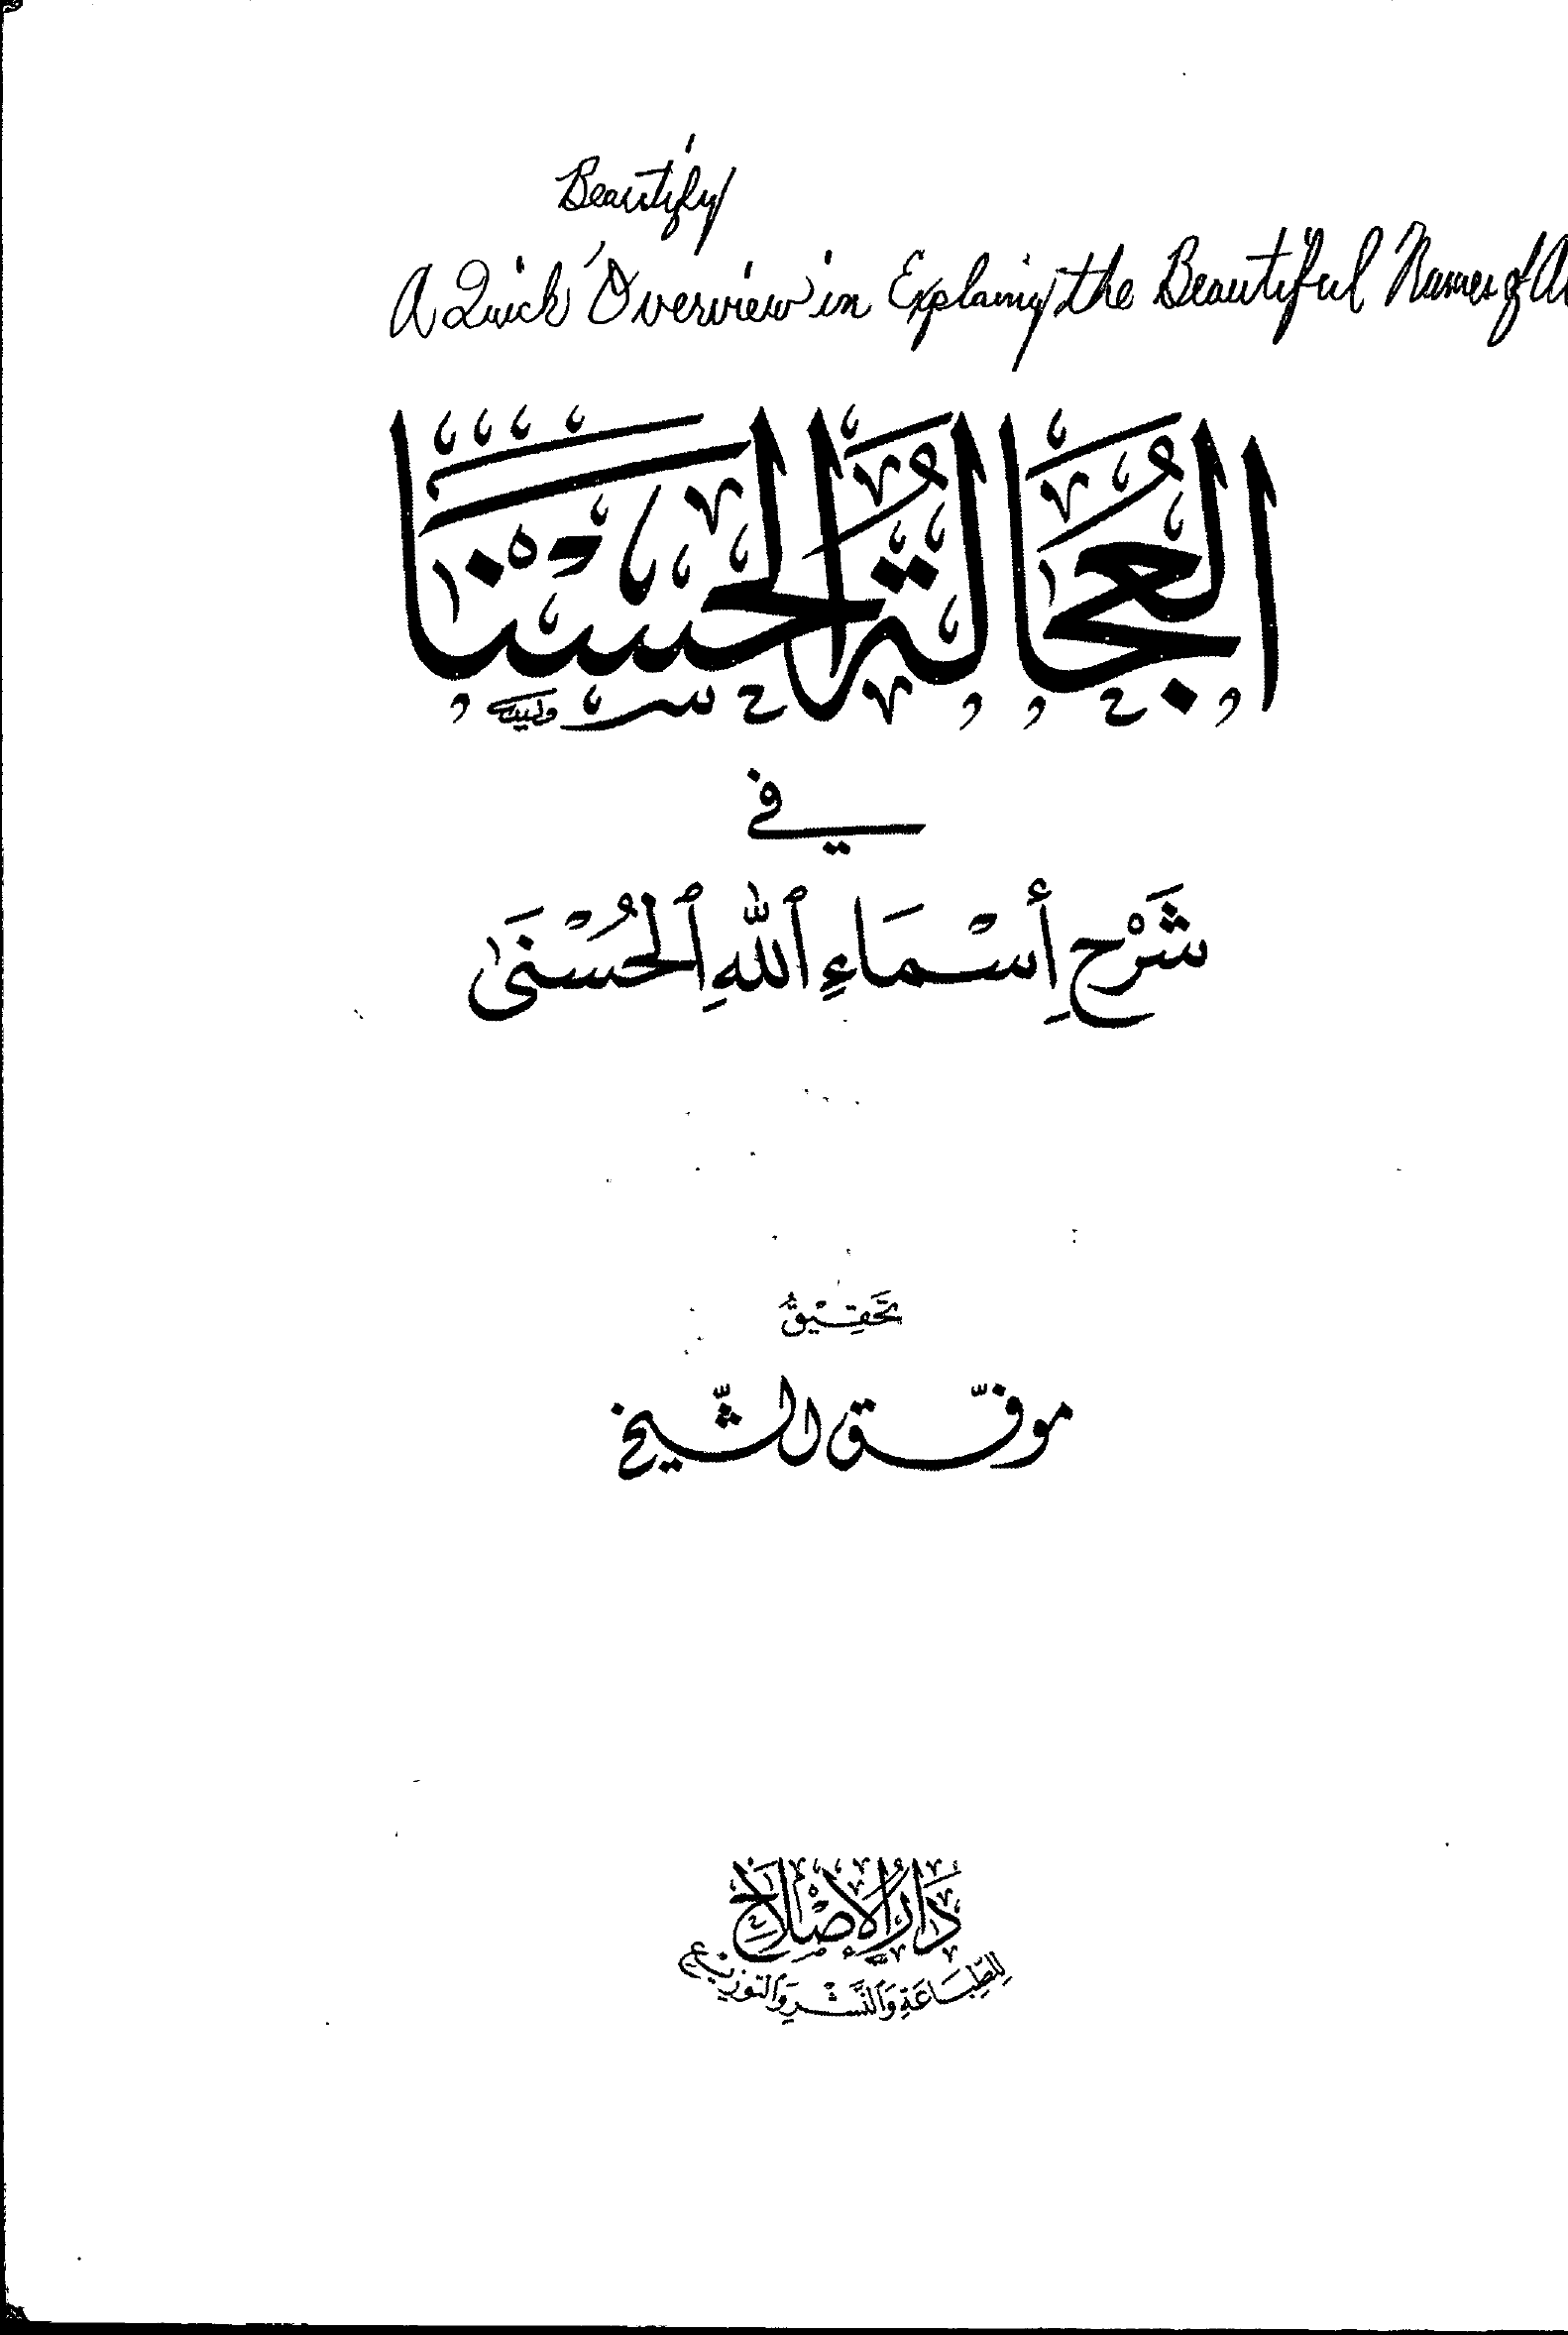 Beautify
A Quick Overview in Explaing the Beautiful Names of A
العُجَالَةُ الحَسْنَاءُ
في
شَرْحِ أَسْمَاءِ ٱللهِ ٱلْحُسْنَىٰ
تَحْقِيْقُ
موفّق الشّيخ
دَارُ الإِصْلَاحِ
لِلطِّبَاعَةِ وَالنَّشْرِ وَالتَّوْزِيْعِ